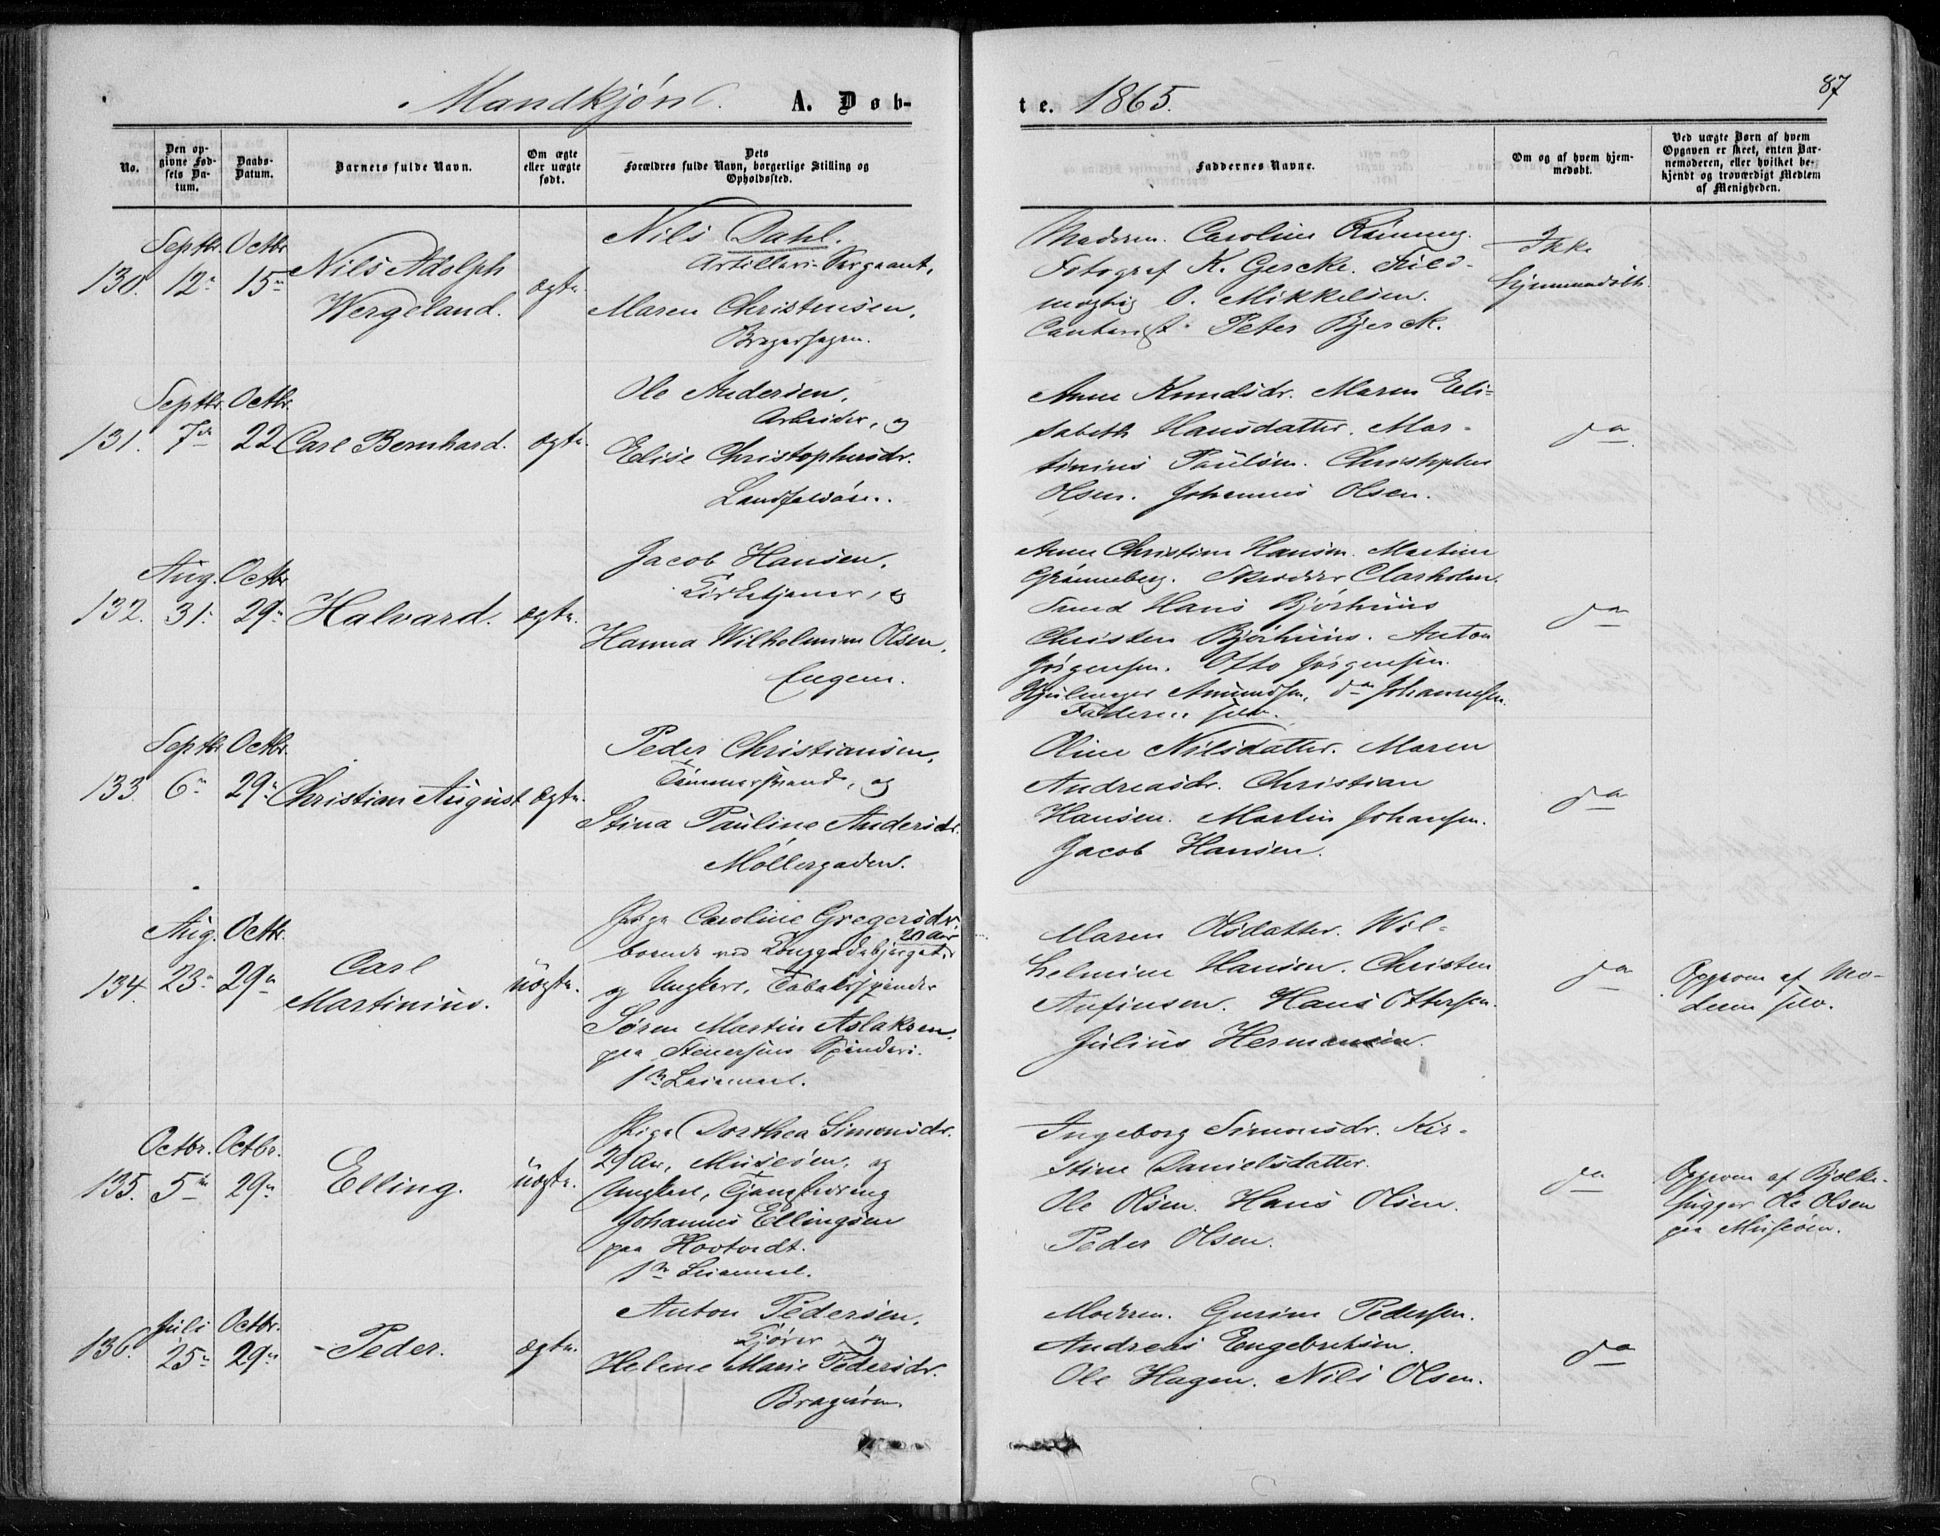 87
Mandkjøn. A. Døb-
te. 1865.
No.
Den op-
givne Fød-
sels Da-
tum.
Daabs-
Datum.
Barnets fulde Navn.
Om ægte
eller uægte
født.
Dets
Forældres fulde Navn, borgerlige Stilling og
Opholdssted.
Faddernes Navne.
Om og af hvem hjem-
medøbt.
Ved uægte Børn af hvem
Opgaven er skeet, enten Bar-
nemoderen, eller hvilket be-
kjendt og troværdigt Medlem
af Menigheden.
130.
Septbr. 12te
Octbr. 15de
Nils Adolph
Wergeland.
ægte.
Nils Dahl.
Artilleri-Sergeant,
Maren Christensen,
Moderen. Caroline
Fotograf K. Gercke.
O. Mikkelsen.
Peter Bjerck.
Ikke
hjemmedøbt.
131.
Septbr. 7de
Octbr. 22
Carl Bernhard.
ægte.
Ole Andersen,
Arbeider, og
Elise Christophersdr.
Landfaldøen.
Anne Knudsdr. Maren Eli-
sabeth Hansdatter. Mar-
tinius Paulsen. Christopher
Olsen. Johannes Olsen.
do
132.
Aug. 31.
Octbr. 29de
Halvard.
ægte.
Jacob Hansen,
Kirketjener, og
Hanna Wilhelmine Olsen,
Engene.
Anne Christine Hansen. Martine
Grønneberg. Skrædder Clasholm.
Hans Bjørhuus
Christen Bjørhuus. Anton
Jørgensen. Otto Jørgensen.
Amundsen, do Johannessen.
Faderen selv.
do
133.
Septbr. 6te
Octbr. 29de
Christian August
ægte.
Peder Christiansen,
Tømmermand, og
Stina Pauline Andersdr.
Møllergaden.
Oline Nilsdatter. Maren
Andreasdr. Christian
Hansen. Martin Johansen.
Jacob Hansen.
do
134.
Aug. 23de
Octbr. 29de
Carl
Martinius.
uægte.
Pige Caroline Gregersdr.
20 Aar
boende ved
og Ungkarl, Tobaksspinder
Søren Martin Aslaksen,
paa Steensens Spinderi.
1ste Leiermaal.
Maren Olsdatter. Wil-
helmine Hansen. Christen
Anfinsen. Hans Ottersen.
Julius Hermansen.
do
Opgaven af Mo-
deren selv.
135.
Octbr. 5te
Octbr. 29de
Elling.
uægte.
Pige Dorthea Simonsdr.
29 Aar, Museøen, og
Ungkarl,
Johannes Ellingsen
paa Hovtvedt.
1ste Leiermaal.
Ingeborg Simonsdr. Kir-
stine Danielsdatter.
Ole Olsen. Hans Olsen.
Peder Olsen.
do
Opgaven af Bjelke-
hugger Ole Olsen
paa Museøen.
136.
Juli 25de
Octbr. 29de
Peder.
ægte.
Anton Pedersen,
Kjører, og
Helene Marie Pedersdr.
Bragnøen.
Moderen. Gurine Pedersen.
Andreas Engebretsen.
Ole Hagen. Nils Olsen.
do